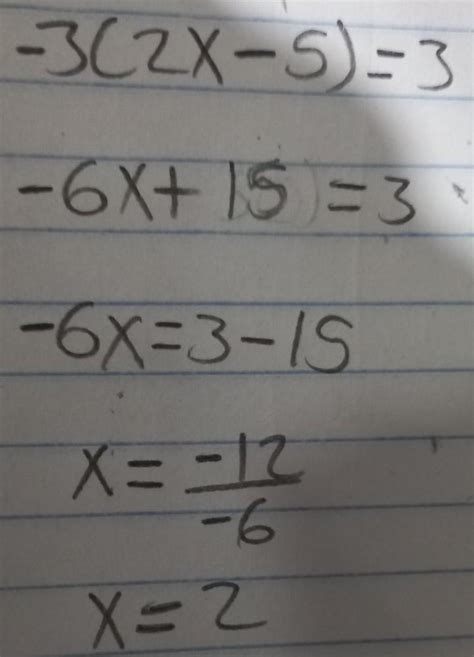 -3(2x-5)=3
-6x+15=3
-6x=3-15
x=-12/-6
x=2